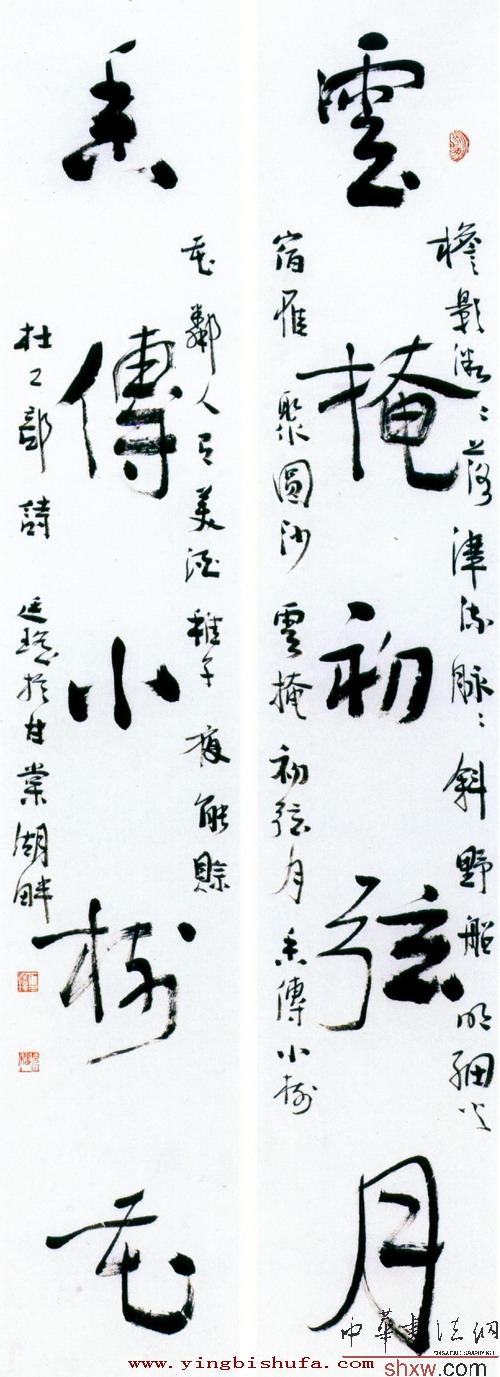 雲掩初弦月
檐影微〻落津流脉〻斜野船明細火
宿雁聚圓沙雲掩初弦月香傳小樹
花鄰人有美酒稚子夜能賒
香傳小樹花
杜工部詩 廷於甘棠湖畔
中華書法網
shxw.com
www.yingbishufa.com